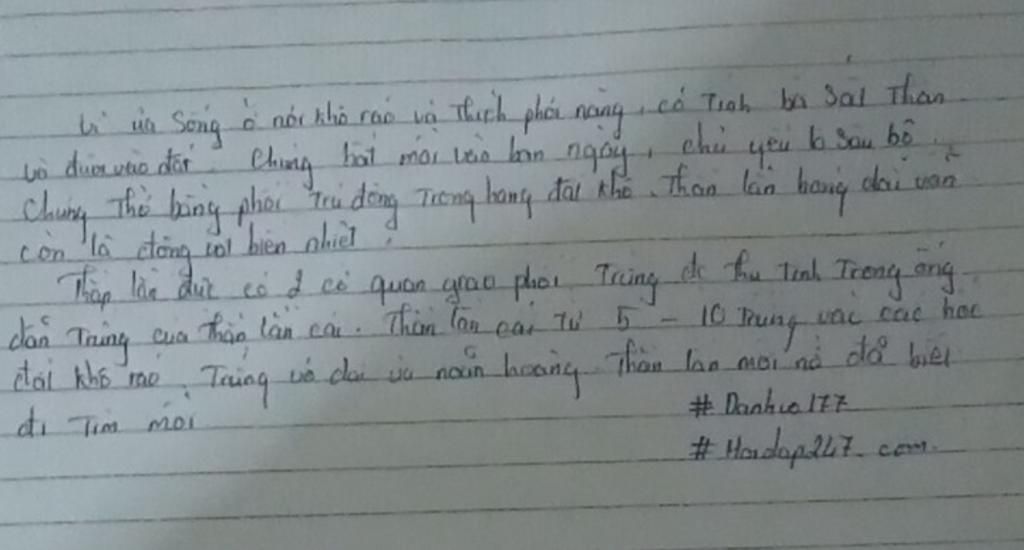 ưa sống ở nơi khô ráo và thích phơi nắng, có tính bò sát thân
và đuôi vào đất. Chúng bắt mồi vào ban ngày, chủ yếu là sâu bọ.
Chúng thở bằng phổi trú đông trong hang đất khô. Thằn lằn bóng đuôi vẫn
còn là động vật biến nhiệt.
Thằn lằn đực có 2 cơ quan giao phối. Trứng đc thụ tinh trong ống
dẫn trứng của thằn lằn cái. Thằn lằn cái từ 5 - 10 trứng vào các hốc
đất khô ráo. Trứng vỏ dai và noãn hoàng. Thằn lằn mới nở đã biết
đi tìm mồi
#Danhvo177
#Hoidap247.com.